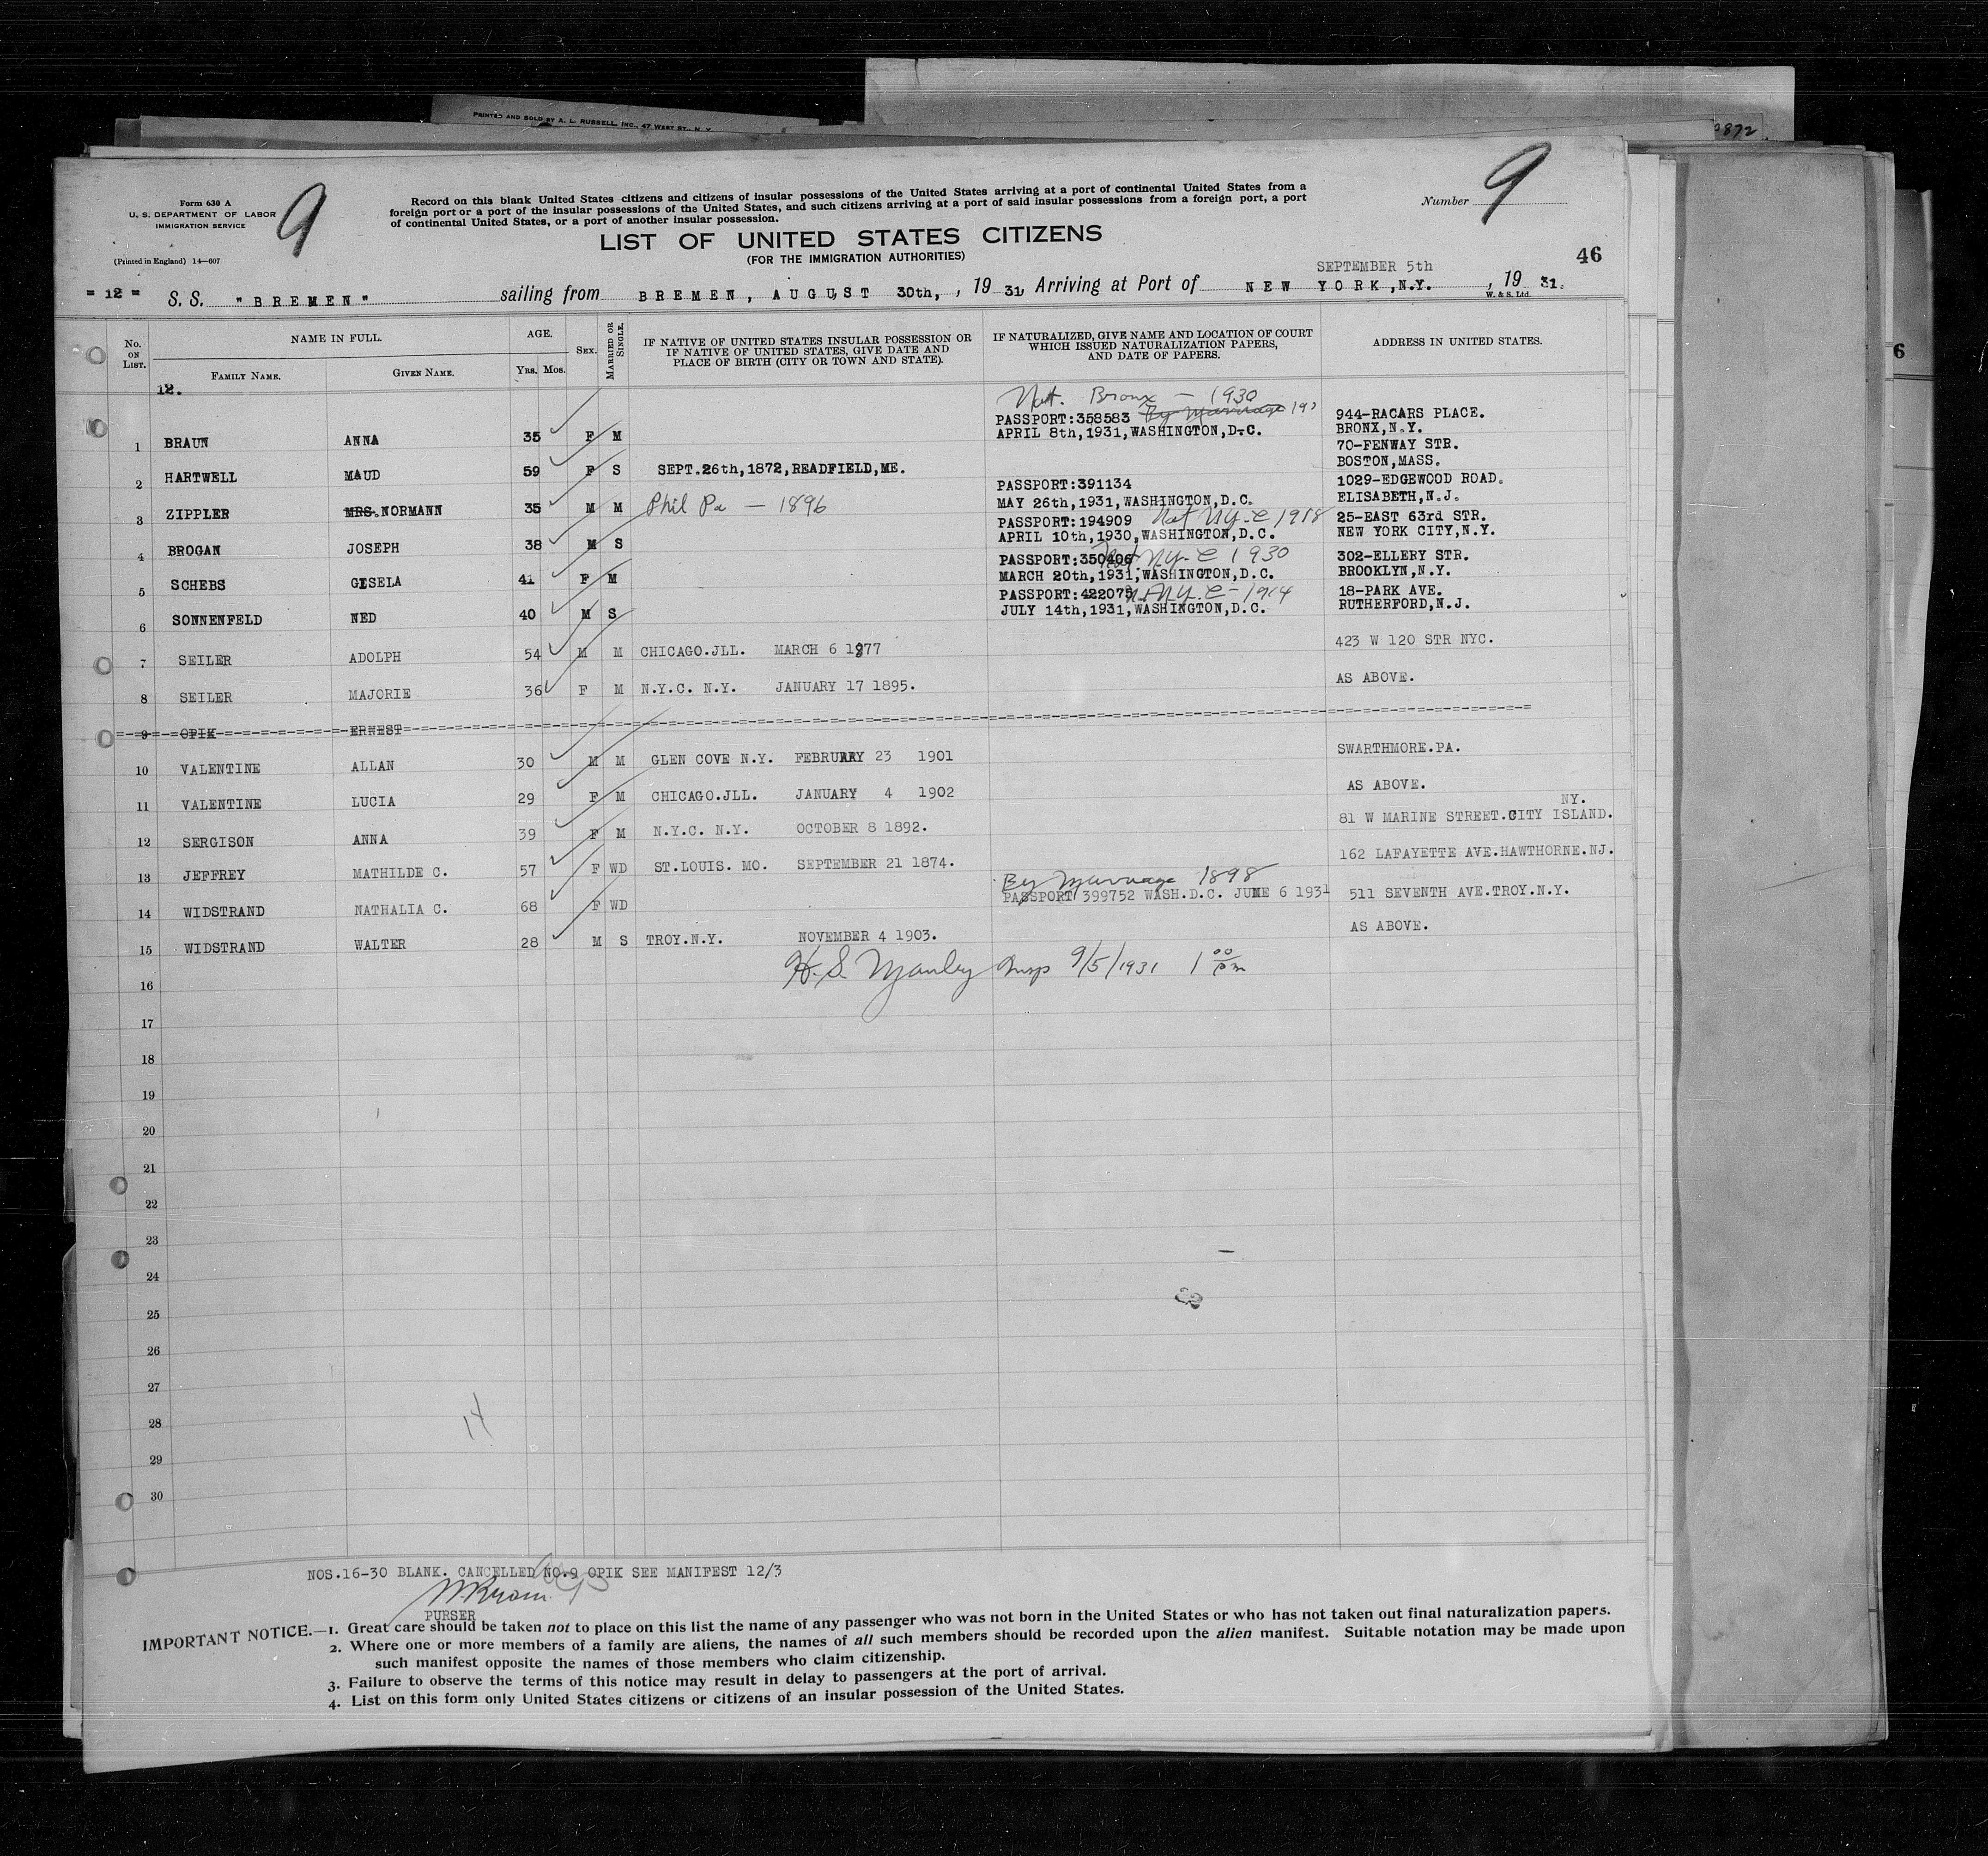 PRINTED AND SOLD BY A. L. RUSSELL, INC., 47 WEST ST., N. Y.
872
Form 630 A
U. S. DEPARTMENT OF LABOR
IMMIGRATION SERVICE
(Printed in England) 14—607
9
Record on this blank United States citizens and citizens of insular possessions of the United States arriving at a port of continental United States from a
foreign port or a port of the insular possessions of the United States, and such citizens arriving at a port of said insular possessions from a foreign port, a port
of continental United States, or a port of another insular possession.
Number 9
LIST OF UNITED STATES CITIZENS
(FOR THE IMMIGRATION AUTHORITIES)
46
= 12 = S. S. "BREMEN" sailing from BREMEN, AUGUST 30th, , 19 31, Arriving at Port of NEW YORK, N.Y. SEPTEMBER 5th , 19 31.
W. & S. Ltd.
No. ON LIST. NAME IN FULL. FAMILY NAME. GIVEN NAME. AGE. Yrs. Mos. SEX. MARRIED OR SINGLE. IF NATIVE OF UNITED STATES INSULAR POSSESSION OR IF NATIVE OF UNITED STATES, GIVE DATE AND PLACE OF BIRTH (CITY OR TOWN AND STATE). IF NATURALIZED, GIVE NAME AND LOCATION OF COURT WHICH ISSUED NATURALIZATION PAPERS, AND DATE OF PAPERS. ADDRESS IN UNITED STATES.
6
12.
Nat. Bronx — 1930
PASSPORT:358583 By Marriage 944-RACARS PLACE.
1 BRAUN ANNA 35 F M APRIL 8th,1931,WASHINGTON,D.C. BRONX,N.Y.
70-FENWAY STR.
2 HARTWELL MAUD 59 F S SEPT.26th,1872,READFIELD,ME. BOSTON,MASS.
PASSPORT:391134 1029-EDGEWOOD ROAD.
3 ZIPPLER MRS.NORMANN 35 M M Phil Pa — 1896 MAY 26th,1931,WASHINGTON,D.C. ELISABETH,N.J.
PASSPORT:194909 Nat NY-C 1918 25-EAST 63rd STR.
4 BROGAN JOSEPH 38 M S APRIL 10th,1930,WASHINGTON,D.C. NEW YORK CITY,N.Y.
PASSPORT:350406 Nat. N.Y.C 1930 302-ELLERY STR.
5 SCHEBS GISELA 41 F M MARCH 20th,1931,WASHINGTON,D.C. BROOKLYN,N.Y.
PASSPORT:422075 N.Y.C-1914 18-PARK AVE.
6 SONNENFELD NED 40 M S JULY 14th,1931,WASHINGTON,D.C. RUTHERFORD,N.J.
7 SEILER ADOLPH 54 M M CHICAGO.JLL. MARCH 6 1877 423 W 120 STR NYC.
8 SEILER MAJORIE 36 F M N.Y.C. N.Y. JANUARY 17 1895. AS ABOVE.
9 OPIK ERNEST
10 VALENTINE ALLAN 30 M M GLEN COVE N.Y. FEBRUARY 23 1901 SWARTHMORE.PA.
11 VALENTINE LUCIA 29 F M CHICAGO.JLL. JANUARY 4 1902 AS ABOVE.
NY.
12 SERGISON ANNA 39 F M N.Y.C. N.Y. OCTOBER 8 1892. 81 W MARINE STREET.CITY ISLAND.
13 JEFFREY MATHILDE C. 57 F WD ST.LOUIS. MO. SEPTEMBER 21 1874. 162 LAFAYETTE AVE.HAWTHORNE.NJ.
By Marriage 1898
14 WIDSTRAND NATHALIA C. 68 F WD PASSPORT 399752 WASH.D.C. JUNE 6 1931 511 SEVENTH AVE.TROY.N.Y.
15 WIDSTRAND WALTER 28 M S TROY.N.Y. NOVEMBER 4 1903. AS ABOVE.
H. S. Manley Insp 9/5/1931 1 00 pm
16
17
18
19
20
21
22
23
24
25
26
27
28
14
29
30
NOS.16-30 BLANK. CANCELLED NO.9 OPIK SEE MANIFEST 12/3
PURSER
IMPORTANT NOTICE.—1. Great care should be taken not to place on this list the name of any passenger who was not born in the United States or who has not taken out final naturalization papers.
2. Where one or more members of a family are aliens, the names of all such members should be recorded upon the alien manifest. Suitable notation may be made upon
such manifest opposite the names of those members who claim citizenship.
3. Failure to observe the terms of this notice may result in delay to passengers at the port of arrival.
4. List on this form only United States citizens or citizens of an insular possession of the United States.